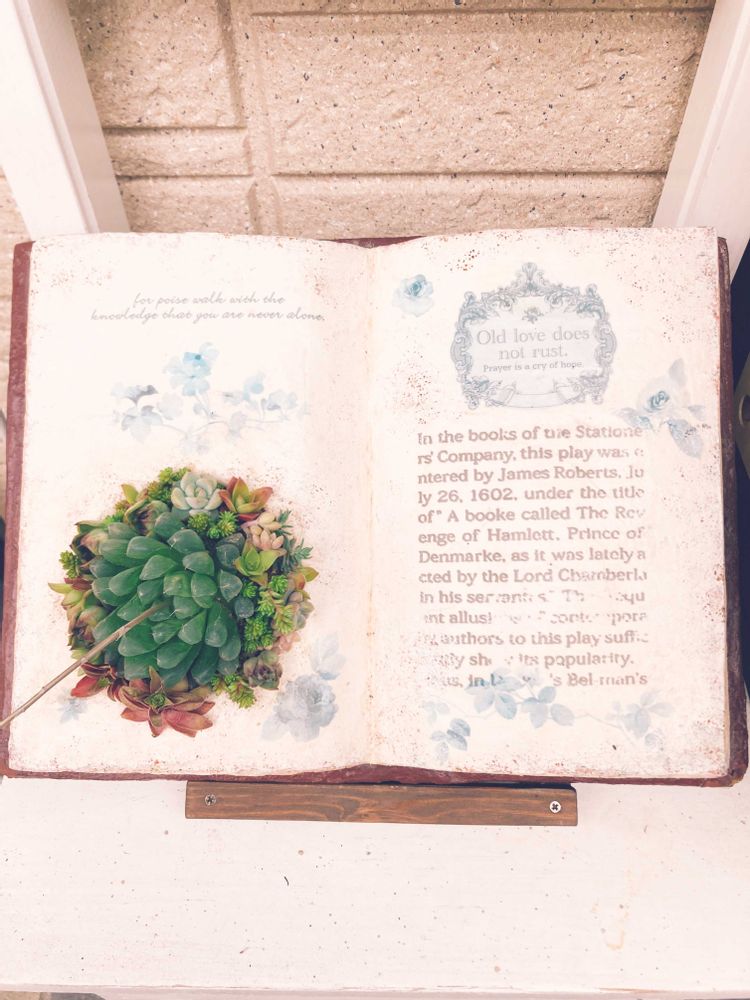 for poise walk with the
knowledge that you are never alone.
Old love does
not rust.
Prayer is a cry of hope.
In the books of the Statione
rs' Company, this play was e
ntered by James Roberts, Ju
ly 26, 1602, under the title
of " A booke called The Rev
enge of Hamlett, Prince of
Denmarke, as it was lately a
cted by the Lord Chamberla
in his
authors to this play suffic
its popularity.
in Bel-man's